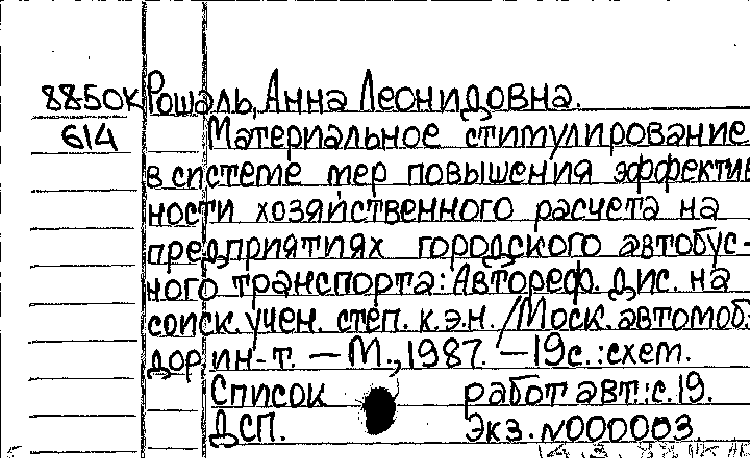 88-50К Рошаль, Анна Леонидовна.
614 Материальное стимулирование
в системе мер повышения эффектив
ности хозяйственного расчета на
предприятиях городского автобус-
ного транспорта: Автореф. дис. на
соиск. учен. степ. к.э.н. /Моск. автомоб.
дор. ин-т. — М., 1987. — 19с.: схем.
Список работ авт.: с.19.
ДСП. Экз. №000003